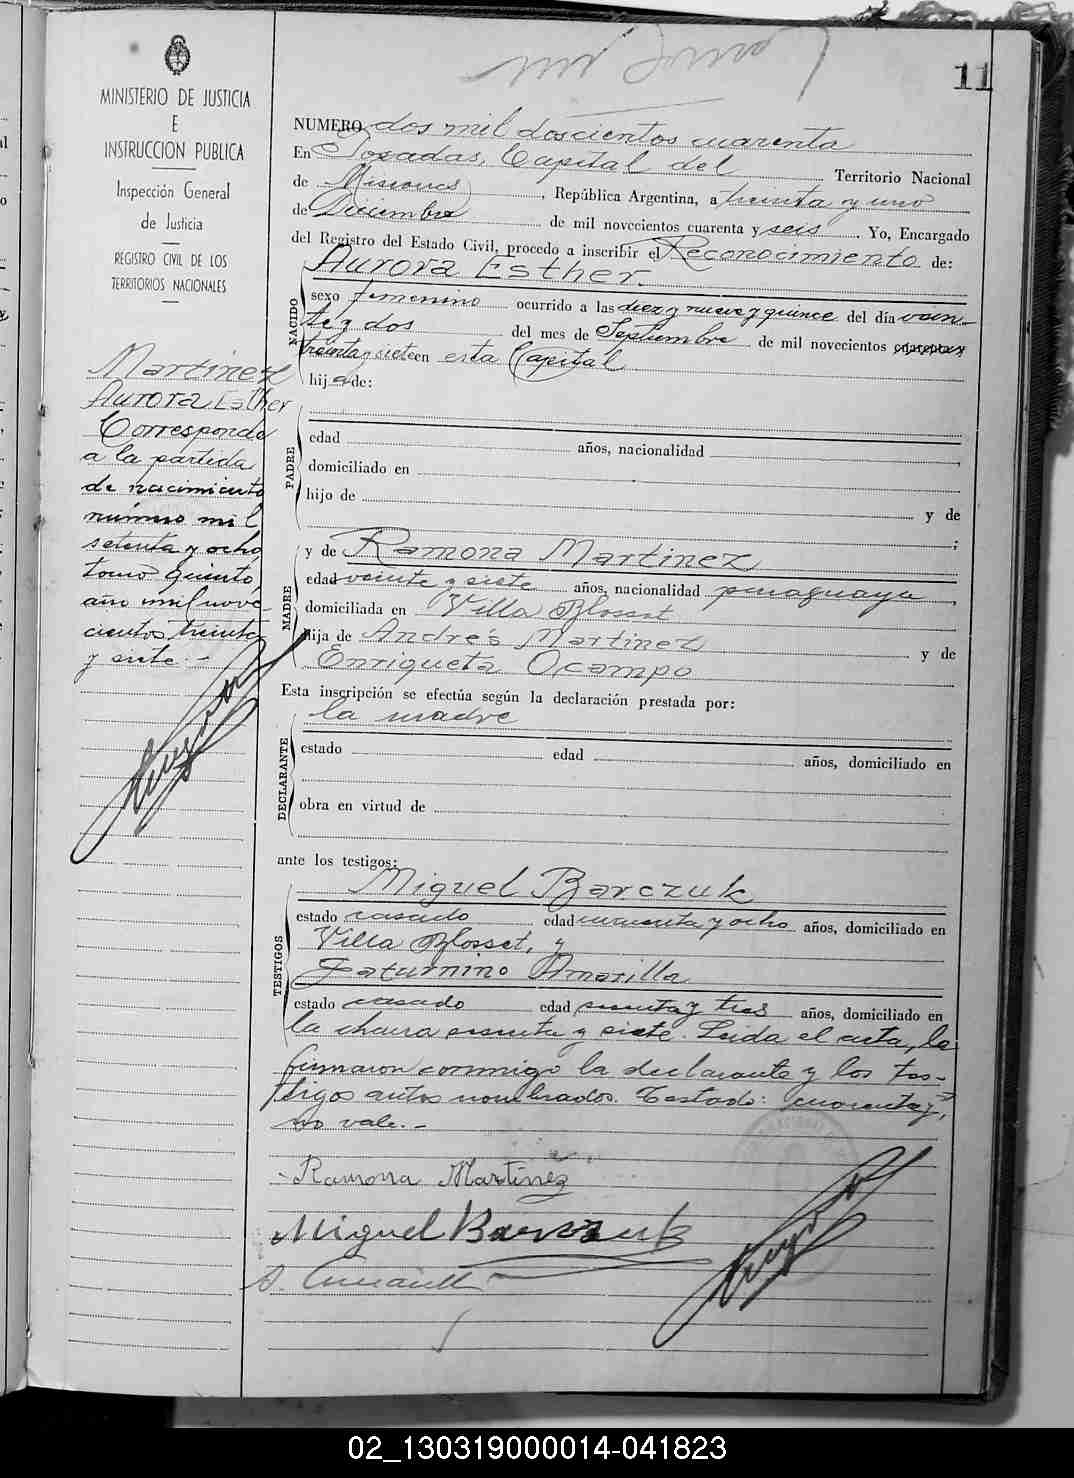 11
MINISTERIO DE JUSTICIA
E
INSTRUCCION PUBLICA
Inspección General
de Justicia
REGISTRO CIVIL DE LOS
TERRITORIOS NACIONALES
Martinez
Aurora Esther
Corresponde
a la partida
de nacimiento
número mil
setenta y ocho
tomo quinto,
año mil nove-
cientos treinta
y siete.-
NUMERO dos mil doscientos cuarenta
En Posadas, Capital del Territorio Nacional
de Misiones, República Argentina, a treinta y uno
de Diciembre de mil novecientos cuarenta y seis. Yo, Encargado
del Registro del Estado Civil, procedo a inscribir el Reconocimiento de:
Aurora Esther.
NACIDO
sexo femenino ocurrido a las diez y nueve y quince del día vein-
te y dos del mes de Septiembre de mil novecientos cuarenta y
treinta y siete en esta Capital
hija de:
PADRE
edad años, nacionalidad ,
domiciliado en
hijo de y de
;
MADRE
y de Ramona Martinez
edad veinte y siete años, nacionalidad paraguaya,
domiciliada en Villa Blosset
hija de Andrés Martinez y de
Enriqueta Ocampo
Esta inscripción se efectúa según la declaración prestada por:
la madre
DECLARANTE
estado edad años, domiciliado en
obra en virtud de
ante los testigos:
TESTIGOS
Miguel Barczuk
estado casado edad cuarenta y ocho años, domiciliado en
Villa Blosset, y
Saturnino Amarilla
estado casado edad y tres años, domiciliado en
la chacra sesenta y siete. Leida el acta, la
firmaron conmigo la declarante y los tes-
tigos antes nombrados. Testado: cuarenta y,
no vale.-
Ramona Martinez
Miguel Barczuk
02_130319000014-041823